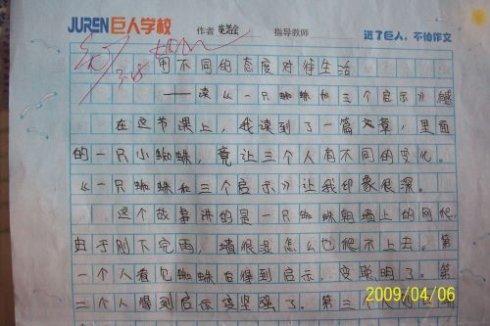 JUREN巨人学校 作者 指导教师 进了巨人,不怕作文
用不同的态度对待生活
——读《一只蜘蛛和三个启示》感
在这节课上,我读到了一篇文章,里面
的一只小蜘蛛,竟让三个人有不同的变化。
《一只蜘蛛和三个启示》让我印象很深。
这个故事讲的是一只蜘蛛朝墙上的网爬,
由于刚下完雨,墙很湿怎么也爬不上去。第
一个人看见蜘蛛后得到启示,变聪明了。第
二个人得到启示变坚强了。第三个人
2009/04/06